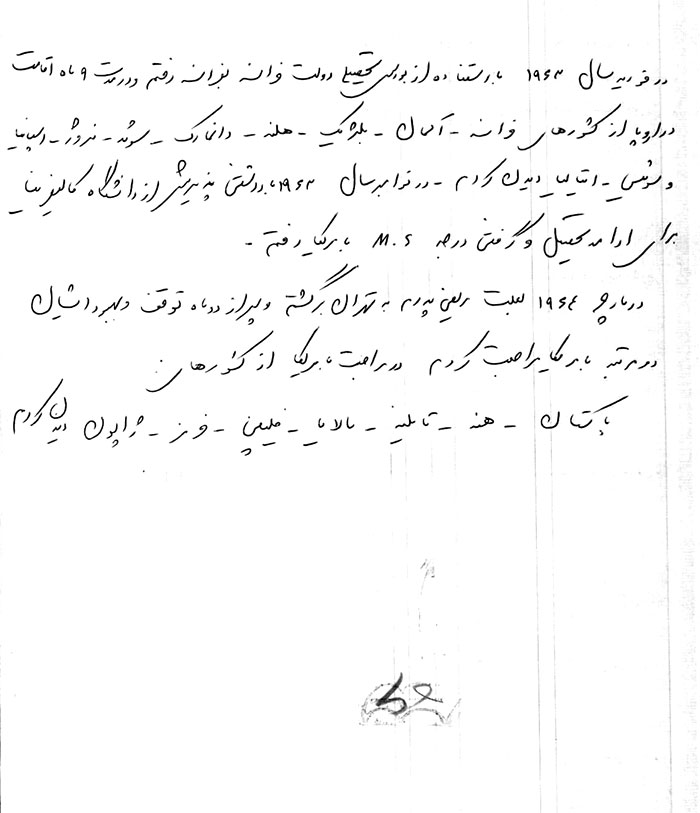 در فوریه سال ۱۹۶۳ با استفاده از بورس تحصیلی دولت فرانسه بفرانسه رفتم و در مدت ۹ ماه اقامت
در اروپا از کشورهای فرانسه - آلمان - بلژیک - هلند - دانمارک - سوئد - نروژ - اسپانیا
و سوئیس - ایتالیا دیدن کردم - در نوامبر سال ۱۹۶۳ با داشتن پذیرش از دانشگاه کالیفرنیا
برای ادامه تحصیل و گرفتن درجه M.S بامریکا رفتم -
در مارچ ۱۹۶۴ بعلت مریضی پدرم به تهران برگشته و پس از دو ماه توقف و بهبود ایشان
دو مرتبه بامریکا مراجعت کردم در مراجعت بامریکا از کشورهای:
پاکستان - هند - تایلند - مالایا - فیلیپین - فرمز - ژاپون دیدن کردم